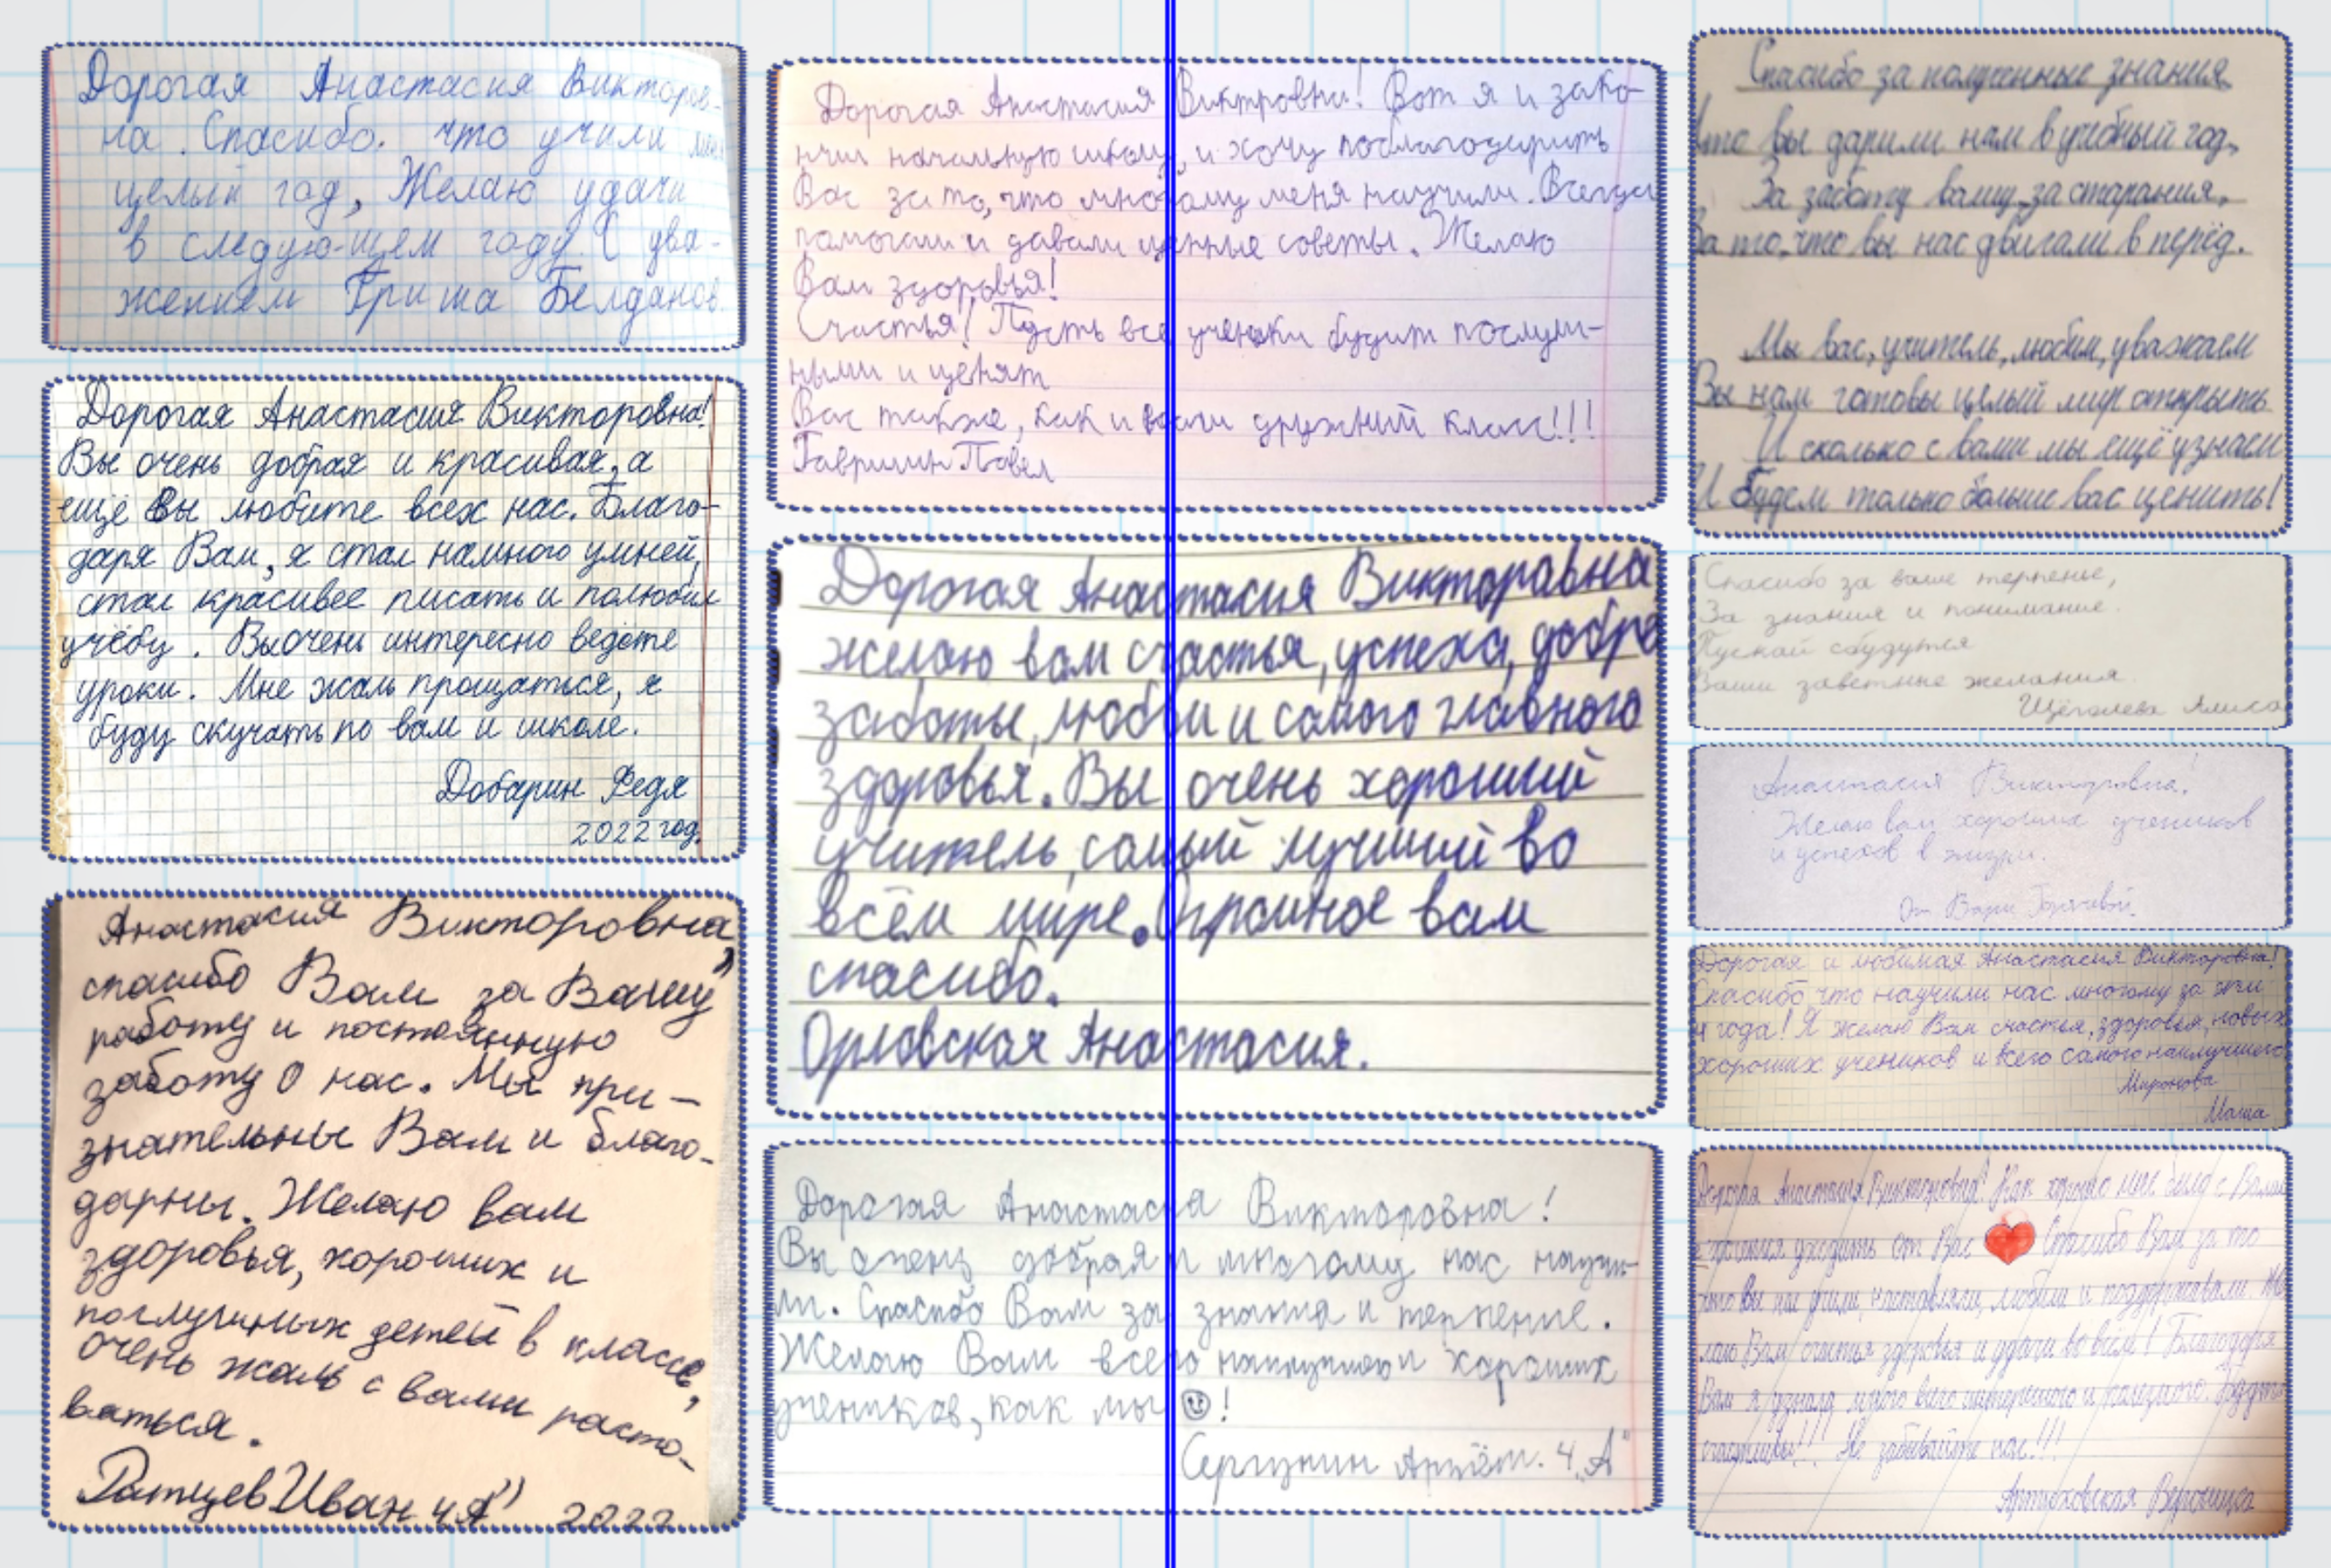 Дорогая Анастасия Викторов-
на. Спасибо. что учили мен
целый год, Желаю удачи
в следую-щем году. С ува-
жением Гриша Белданов.
Дорогая Анастасия Викторовна!
Вы очень добрая и красивая, а
ещё Вы любите всех нас. Благо-
даря Вам, я стал намного умней,
стал красивее писать и полюбил
учёбу. Вы очень интересно ведёте
уроки. Мне жаль прощаться, я
буду скучать по вам и школе.
Добарин Федя
2022 год.
Анастасия Викторовна,
спасибо Вам за Вашу
работу и постоянную
заботу о нас. Мы при-
знательны Вам и благо-
дарны. Желаю вам
здоровья, хороших и
послушных детей в классе,
очень жаль с вами расто-
ваться.
Ратцев Иван 4 "А" 2022
Дорогая Анастасия Виктровна! Вот я и зако-
нчил начальную школу, и хочу поблагодарить
Вас за то, что многому меня научили. Всегда
помогали и давали ценные советы. Желаю
Вам здоровья!
Счастья! Пусть все ученики будут послуш-
ными и ценят
Вас также, как и наш дружный класс!!!
Гаврилин Павел
Дорогая Анастасия Викторавна
желаю вам счастья, успеха, добра
заботы, любви и самого главного
здоровья. Вы очень хороший
учитель, самый лучший во
всём мире. Огромное вам
спасибо.
Орловская Анастасия.
Дорогая Анастасиа Викторовна!
Вы очень добрая и многому нас научи-
ли. Спасибо Вам за знания и терпение.
Желаю Вам всего наилучшего и хороших
учеников, как мы ☺!
Сергунин Артём. 4 „А"
Спасибо за полученные знания,
Что вы дарили нам в учебный год,
За заботу вашу, за старания,
За то, что вы нас двигали в перёд.
Мы вас, учитель, любим, уважаем
Вы нам готовы целый мир открыть
И сколько с вами мы ещё узнаем
И будем только больше вас ценить!
Спасибо за ваше терпенье,
За знания и понимание.
Пускай сбудутся
Ваши заветные желания.
Щёголева Алиса
Анастасия Викторовна!
Желаю вам хороших учеников
и успехов в жизни.
От Вари
Дорогая и любимая Анастасия Викторовна!
Спасибо что научили нас многому за эти
4 года! Я желаю Вам счастья, здоровья, новых
хороших учеников и всего самого наилучшего
Миронова
Маша
Дорогая Анастасия Викторовна! Как хорошо мне было с Вами
уходить от Вас Спасибо Вам за то
что Вы нас учили, наставляли, любили и поддерживали. Же
лаю Вам счастья здоровья и удачи во всём! Благодаря
Вам я узнала много всего интересного и Будьте
счастливы!!! Не забывайте нас!!!
Артюховская Вероника